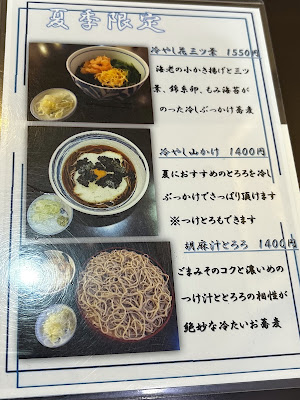 夏季限定
冷やし花三ツ葉 1550円
海老の小かき揚げと三ツ
葉、錦糸卵、もみ海苔が
のった冷しぶっかけ蕎麦
冷やし山かけ 1400円
夏におすすめのとろろを冷し
ぶっかけでさっぱり頂けます
※つけとろもできます
胡麻汁とろろ 1400円
ごまみそのコクと濃いめの
つけ汁ととろろの相性が
絶妙な冷たいお蕎麦